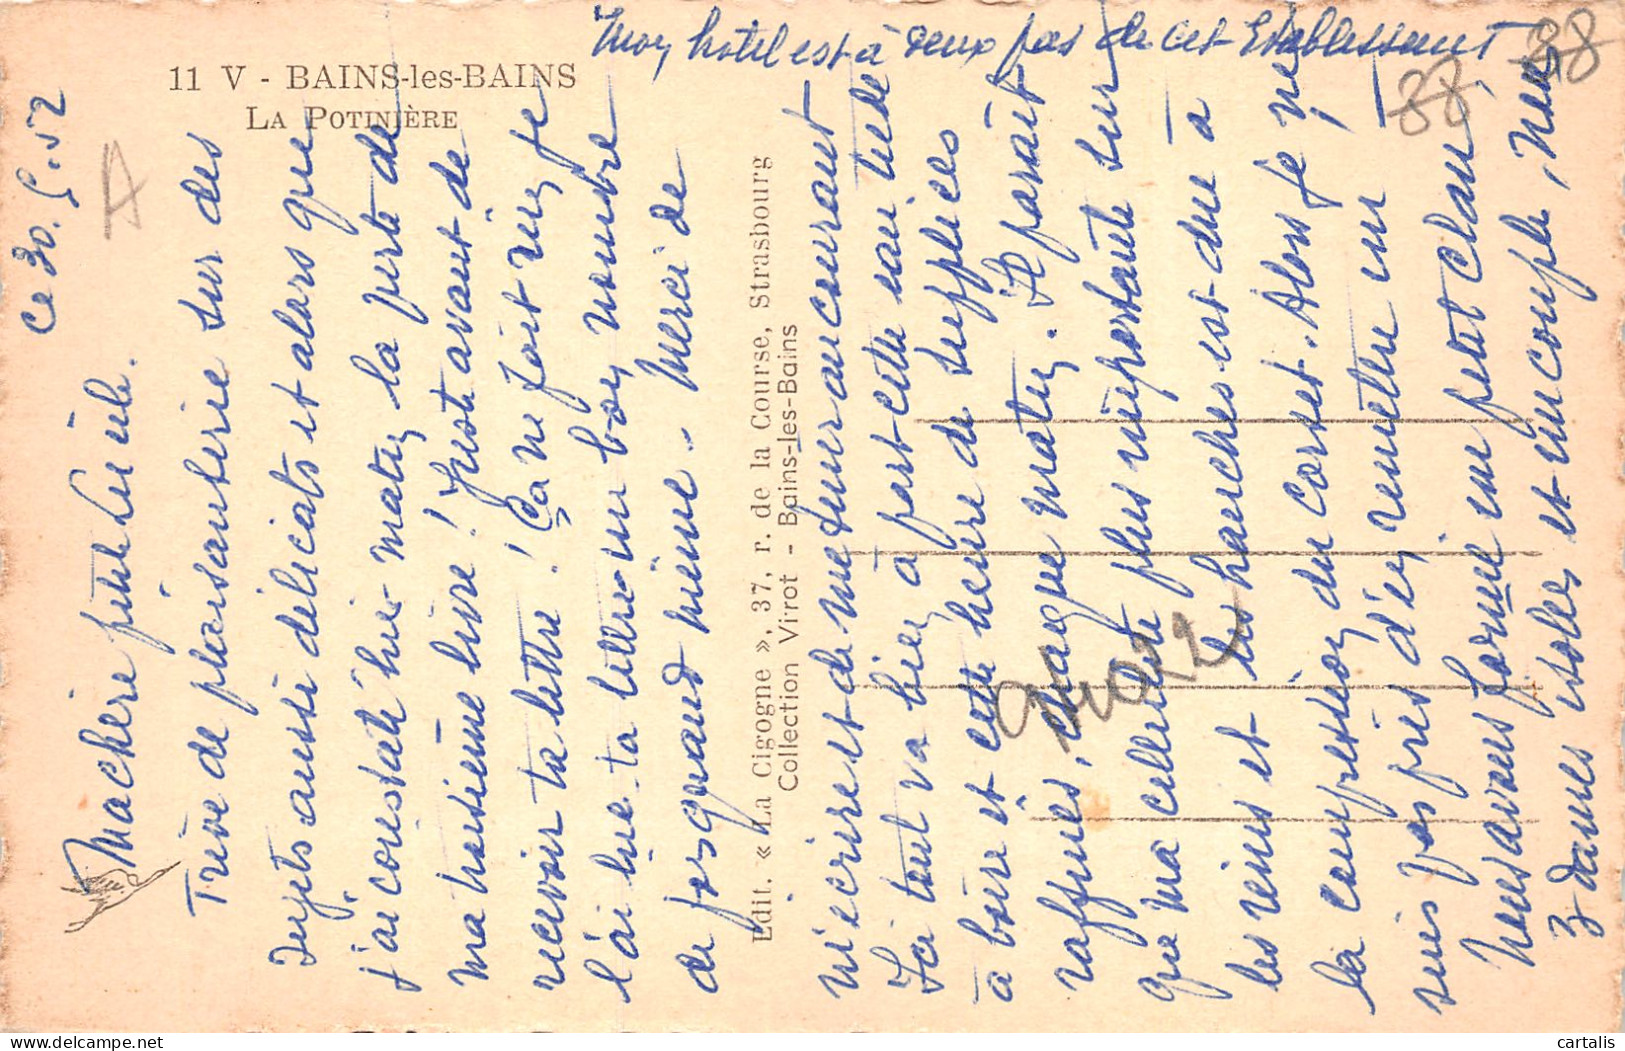 11 V - BAINS-les-BAINS
LA POTINIÈRE
Mon hotel est à deux pas de cet Etablissement,
88
88
Ce 30.5.52
Ma chère petite
Trève de plaisanterie sur des
sujets aussi délicats et alors que
j'ai constaté hier matin la perte de
ma troisième livre ! Juste avant de
recevoir ta lettre ! Ça ne fait rien je
l'ai lue ta lettre un bon nombre
de fois quand même. Merci de
Edit. « La Cigogne », 37, r. de la Course, Strasbourg
Collection Virot - Bains-les-Bains
m'écrire et de me tenir au courant
Ici tout va bien à part cette eau tiède
à boire et cette heure de supplices
raffinés, chaque matin. Il parait
que ma cellulite plus importante sur
les reins et les hanches est due à
la compression du corset. Alors je ne
suis pas près d'en remettre un
Nous avons formé un petit clan,
3 dames isolées et un couple, nous
cartalis